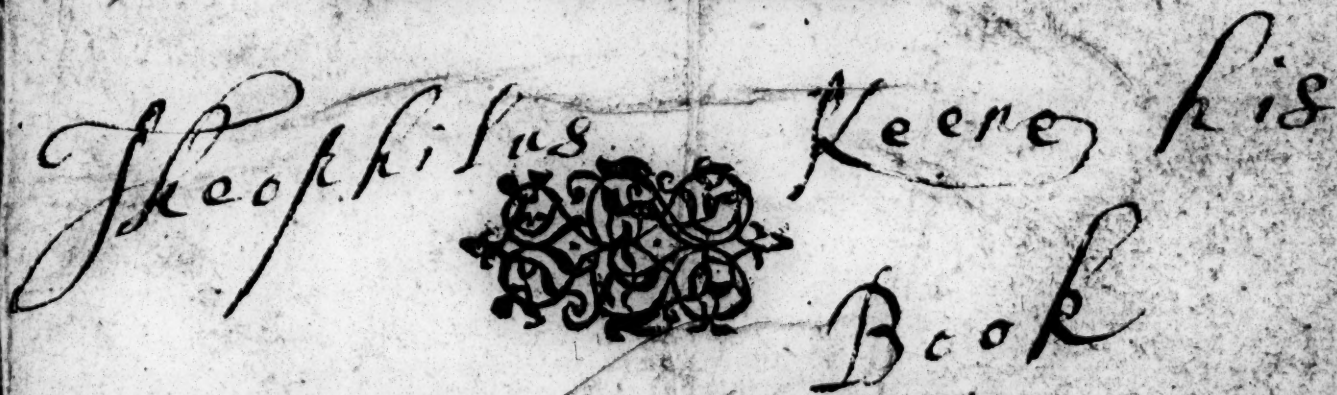 Theophilus Keene his
Book